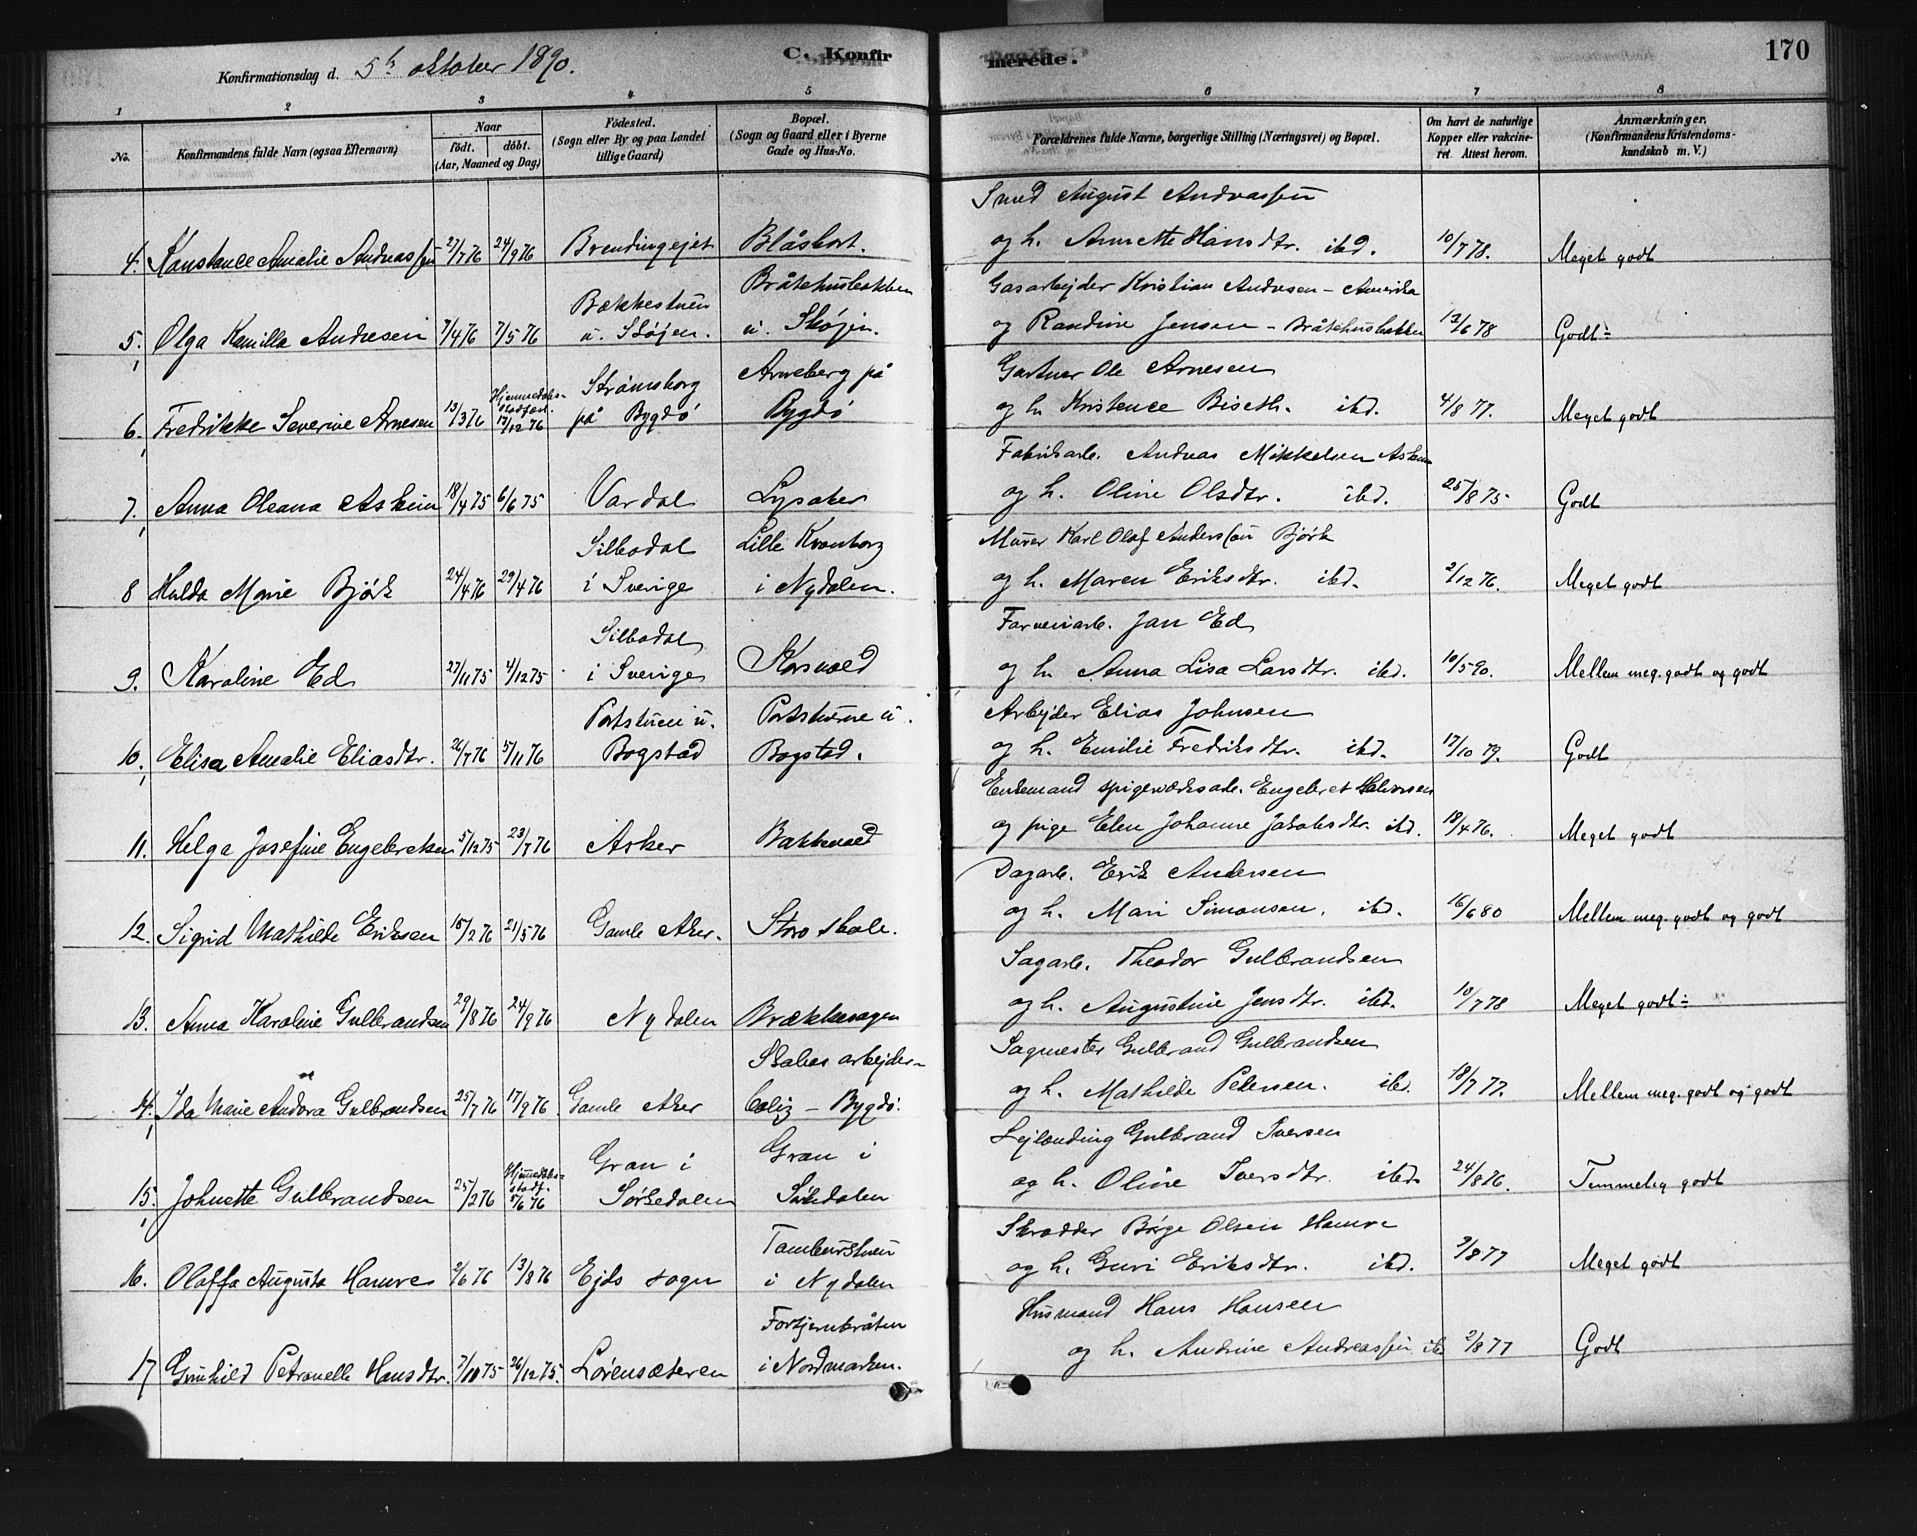 Konfirmationsdag d. 5te oktober 1890.
C. Konfirmerede.
170
1 2 3 4 5 6 7 8
No.
Konfirmandens fulde Navn (ogsaa Efternavn)
Naar
født. døbt.
(Aar, Maaned og Dag)
Fødested.
(Sogn eller By og paa Landet
tillige Gaard)
Bopæl.
(Sogn og Gaard eller i Byerne
Gade og Hus-No.
Forældrenes fulde Navne, borgerlige Stilling (Næringsvei) og Bopæl.
Om havt de naturlige
Kopper eller vakcine-
ret. Attest herom.
Anmærkninger.
(Konfirmandens Kristendoms-
kundskab m. V.)
Smed August Andreassen
4. Konstance Amalie Andreassen 27/7 76 24/9 76 Brendingejet Blåskort. og h. Annette Hansdtr. ibd. 10/7 78. Meget godt
Bækkestuen Bråtehusbakken Gasarbejder Kristian Andresen – Amerika
5. Olga Kamilla Andresen 7/4 76 7/5 76 u. Skøjen. u. Skøjen. og Randine Jensen – Bråtehusbakken 12/6 78 Godt ÷
Hjemmedøbt Strømsborg Arneberg på Gartner Ole Arnesen
6. Fredrikke Severine Arnesen 13/3 76 17/12 76 på Bygdø Bygdø og h. Kristence Biseth. ibd. 4/8 77. Meget godt
Fabrikarb. Andreas Mikkelsen Askim
7. Anna Oleana Askim 18/4 75 6/6 75 Vardal Lysaker og h. Oline Olsdtr. ibd. 25/8 75 Godt
Silbodal Lille Kronborg Murer Karl Olof Andersson Bjørk
8 Hulda Marie Bjørk 24/4 76 29/4 76 i Sverige i Nydalen. og h. Maren Eriksdtr. ibd. 2/12 76. Meget godt
Silbodal Farveriarb. Jan Ed
9. Karoline Ed 27/11 75 4/12 75 i Sverige Korsvold og h. Anna Lisa Larsdtr. ibd. 10/5 90. Mellem meg. godt og godt
Portstuen u. Portstuene u. Arbejder Elias Johnsen
10. Elisa Amalie Eliasdtr. 26/7 76 5/11 76 Bogstad Bogstad. og h. Emilie Fredriksdtr. ibd. 17/10 79. Godt
Enkemand spigerværksarb. Engebret Halvorsen
11. Helga Josefine Engebretsen 5/12 75 23/7 76 Asker Bakkevold og pige Elen Johanne Jakobsdtr. ibd. 18/4 76. Meget godt
Dagarb. Erik Andersen
12. Sigrid Mathilde Eriksen 18/2 76 21/5 76 Gamle Aker. Storo skole. og h. Mari Simonsen. ibd. 16/6 80 Mellem meg. godt og godt
Sagarb. Theodor Gulbrandsen
13. Anna Karoline Gulbrandsen 29/8 76 24/9 76 Nydalen Brækkesagen og h. Augustine Jensdtr. ibd. 10/7 78 Meget godt ÷
Skabos arbejder- Sagmester Gulbrand Gulbrandsen
14. Ida Marie Andora Gulbrandsen 25/7 76 17/9 76. Gamle Aker bolig – Bygdø. og h. Mathilde Petersen. ibd. 18/7 77. Mellem meg. godt og godt
Hjemmedøbt Gran i Gran i Lejlending Gulbrand Iversen
15. Johnette Gulbrandsen 25/2 76 5/6 76 Sørkedalen Sørkedalen og h. Oline Iversdtr. ibd. 24/8 76. Temmelig godt
Tamburstuen Skrædder Børge Olsen Hamre
16. Oloffa Augusta Hamre 2/6 76 13/8 76 Ejds sogn i Nydalen og h. Guri Eriksdtr. ibd. 9/8 77 Meget godt
Fortjernbråten Husmand Hans Hansen
17 Gunhild Petronelle Hansdtr. 7/10 75 26/12 75. Lørensæteren i Nordmarken. og h. Andrine Andreassen ibd 2/8 77 Godt